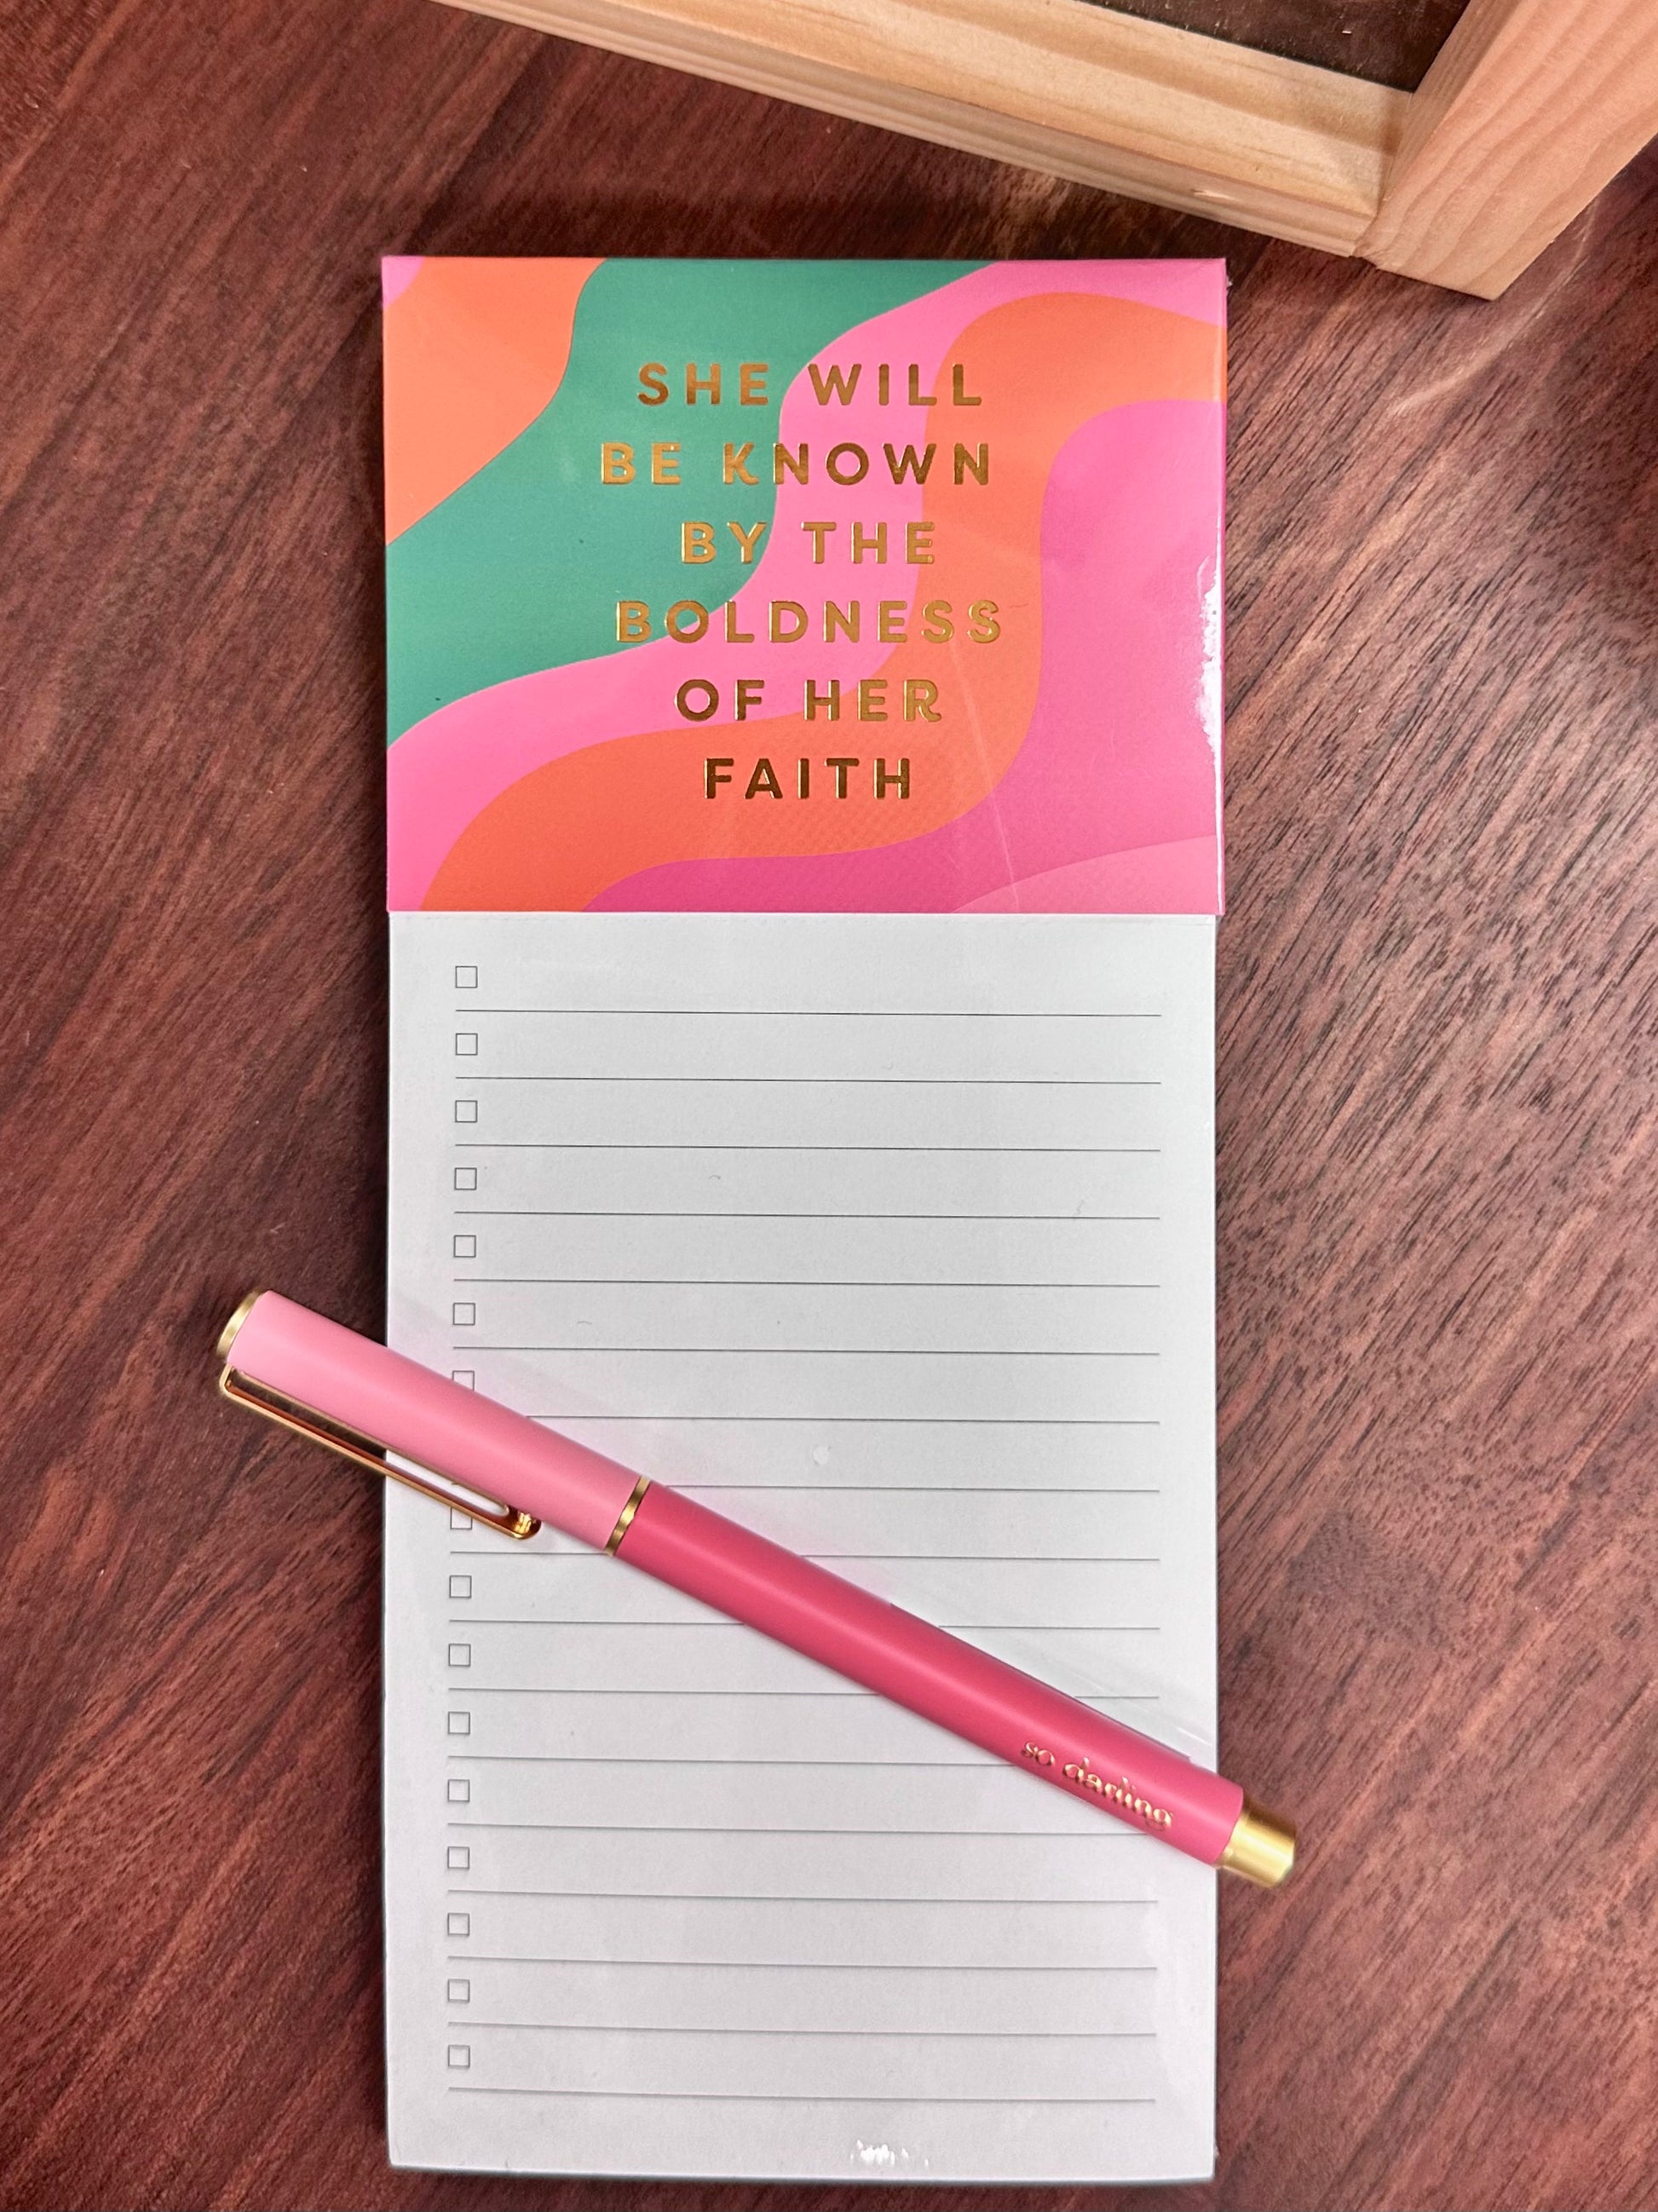 SHE WILL
BE KNOWN
BY THE
BOLDNESS
OF HER
FAITH
so darling